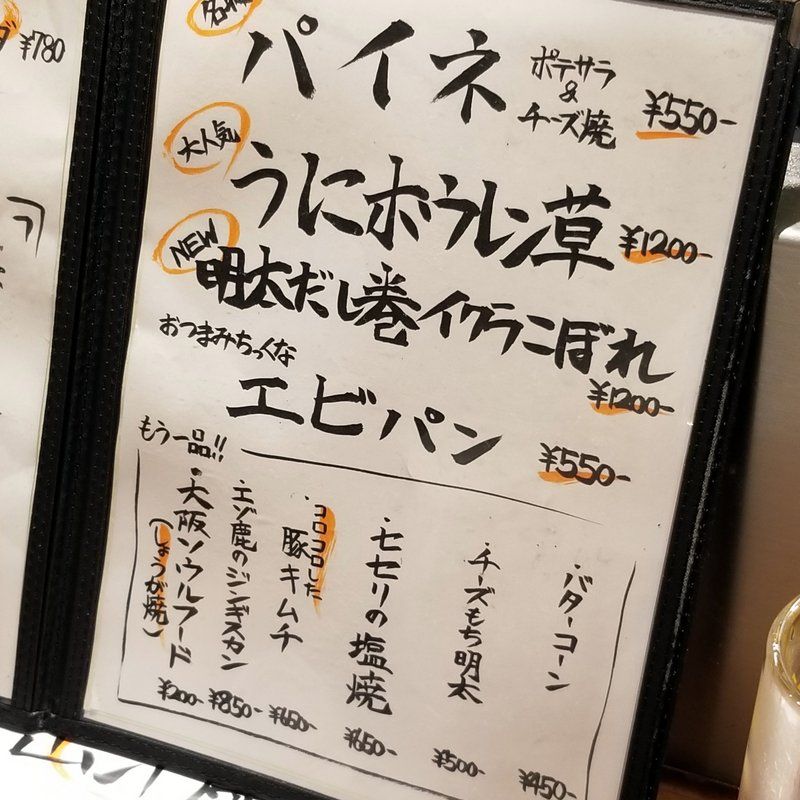 ¥780
パイネ
ポテサラ
&
チーズ焼
¥550-
大人気
うにホウレン草
¥1200-
NEW
明太だし巻イクラこぼれ
¥1200-
おつまみちっくな
エビパン
¥550-
もう一品!!
・バターコーン
¥450-
・チーズもち明太
¥500-
・セセリの塩焼
¥650-
・コロコロした
豚キムチ
¥650-
・エゾ鹿のジンギスカン
¥850-
・大阪ソウルフード
(しょうが焼)
¥200-